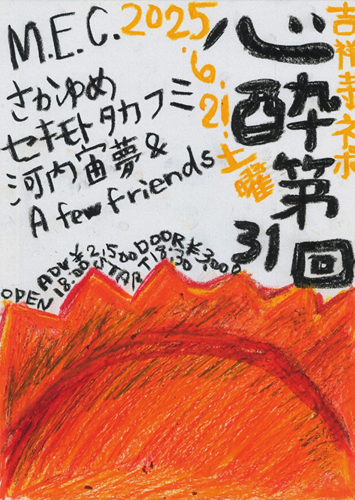 吉祥寺ネポ
心酔第31回
2025.6.21土曜
M.E.C.
さかゆめ
セキモトタカフミ
河内宙夢&
A few friends
ADV.¥2,500 DOOR¥3,000
OPEN 18:00 START 18:30